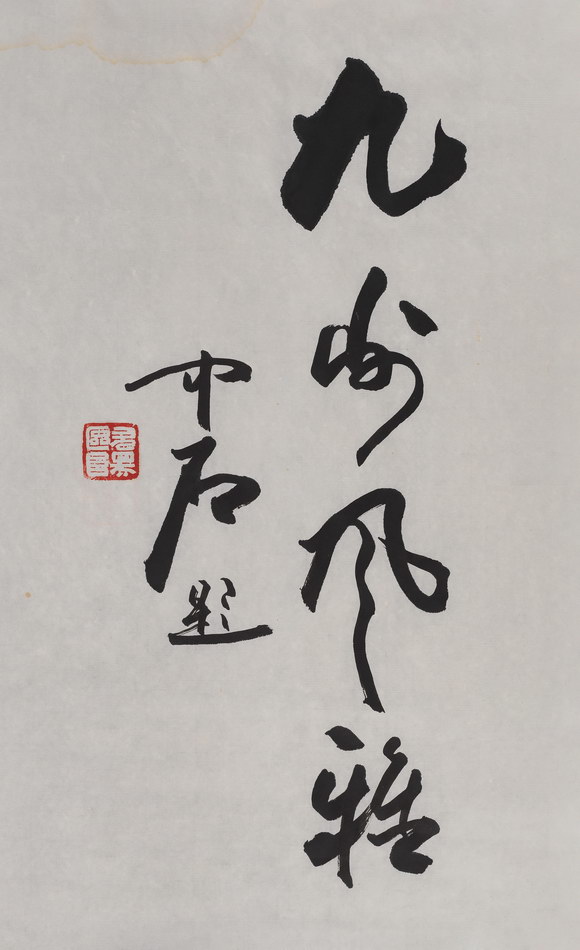 九州风雅
中石题